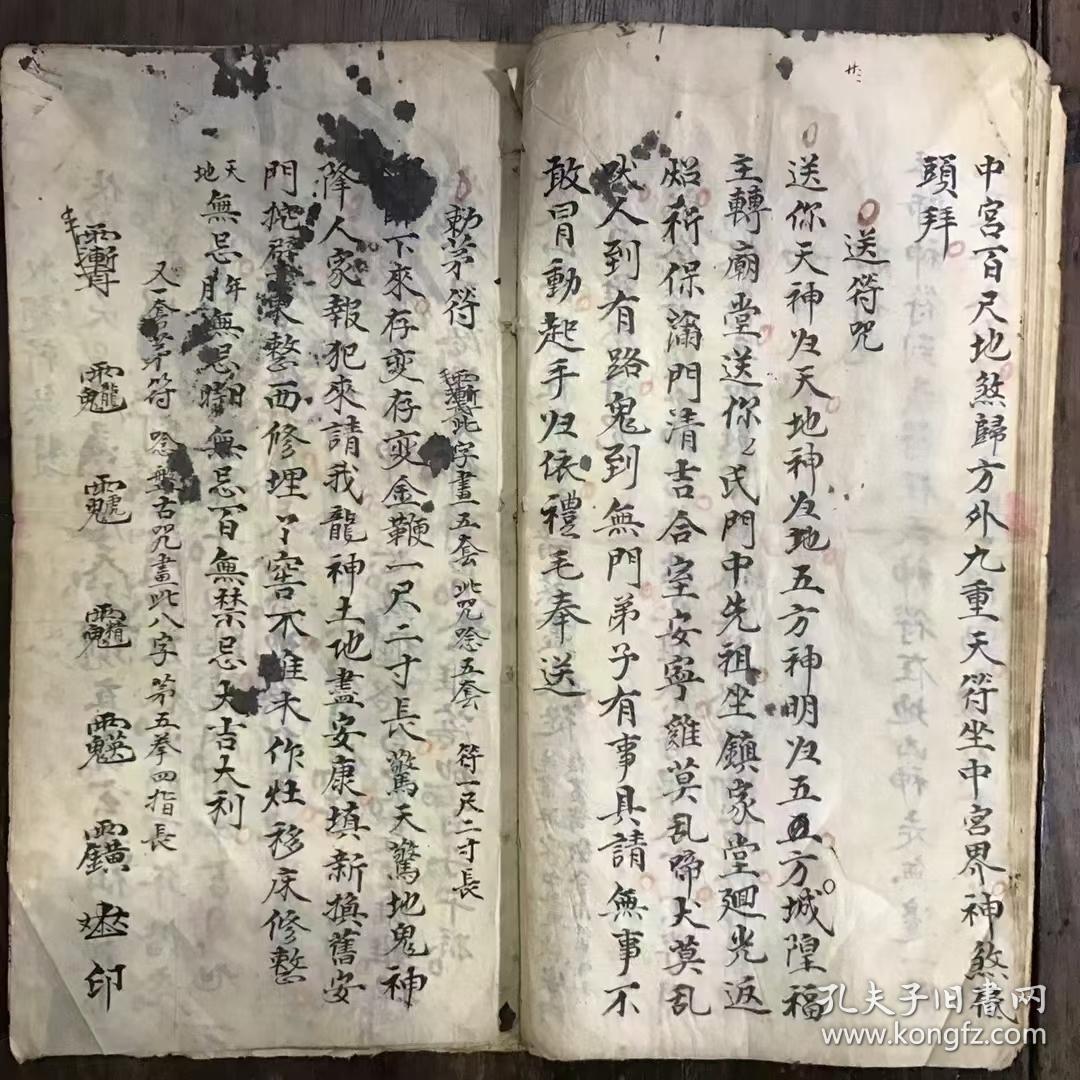 中宮百尺地煞歸方外九重天符坐中宮界神煞盡
頭拜
送符咒
送你天神归天地神归地五方神明归五五方城隍福
主轉廟堂送你氏門中先祖坐鎮家堂廻光返
炤祈保滿門清吉合室安寧雞莫乱啼犬莫乱
吠人到有路鬼到無門弟子有事具請無事不
敢冒動起手归依禮毛奉送
勅茅符 此字畫五套此咒唸五套 符一尺二寸長
下來存变存变金鞭一尺二寸長驚天驚地鬼神
降人家報犯來請我龍神土地盡安康填新換舊安
門挖壁東整西修埋了窖不堆未作灶移床修整
天地無忌年月無忌日時無忌百無禁忌大吉大利
又一套茅符 唸盤古咒畫此八字茅五拳四指長
印
孔夫子旧书网
www.kongfz.com